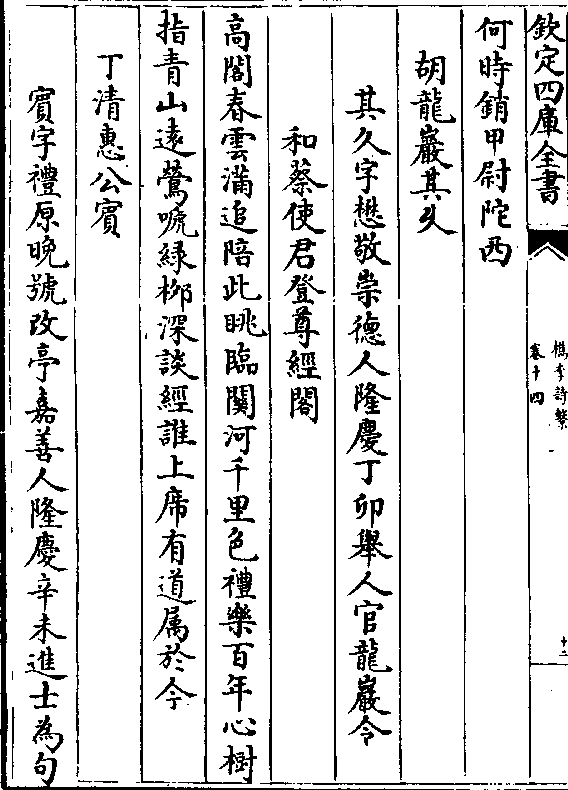 欽定四庫全書
檇李詩繫
卷十四
十二
何時銷甲尉陀西
胡龍巖其久
其久字懋敬崇德人隆慶丁卯舉人官龍巖令
和蔡使君登尊經閣
高閣春雲滿追陪此眺臨關河千里色禮樂百年心樹
指青山遠鶯啼緑栁深談經誰上席有道属於今
丁清惠公賓
賓字禮原晚號改亭嘉善人隆慶辛未進士為句